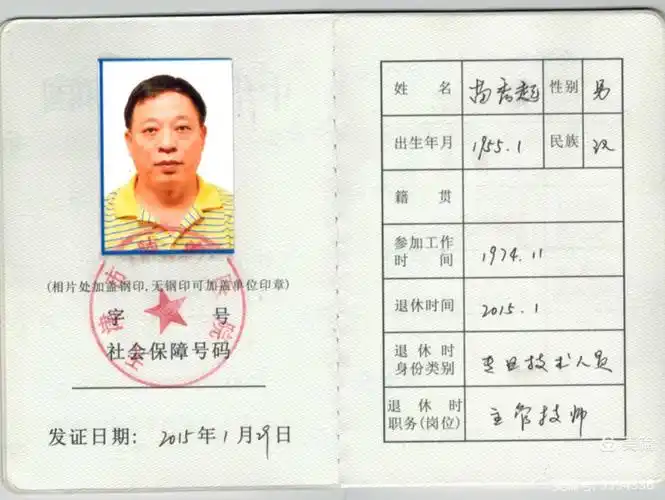 (相片处加盖钢印,无钢印可加盖单位印章)
字 号
社会保障号码
发证日期: 2015年1月29日
姓 名 性别 男
出生年月 1955.1 民族 汉
籍 贯
参加工作
时 间 1974.11
退休时间 2015.1
退休时
身份类别 专业技术人员
退休时
职务(岗位) 主管技师
美篇